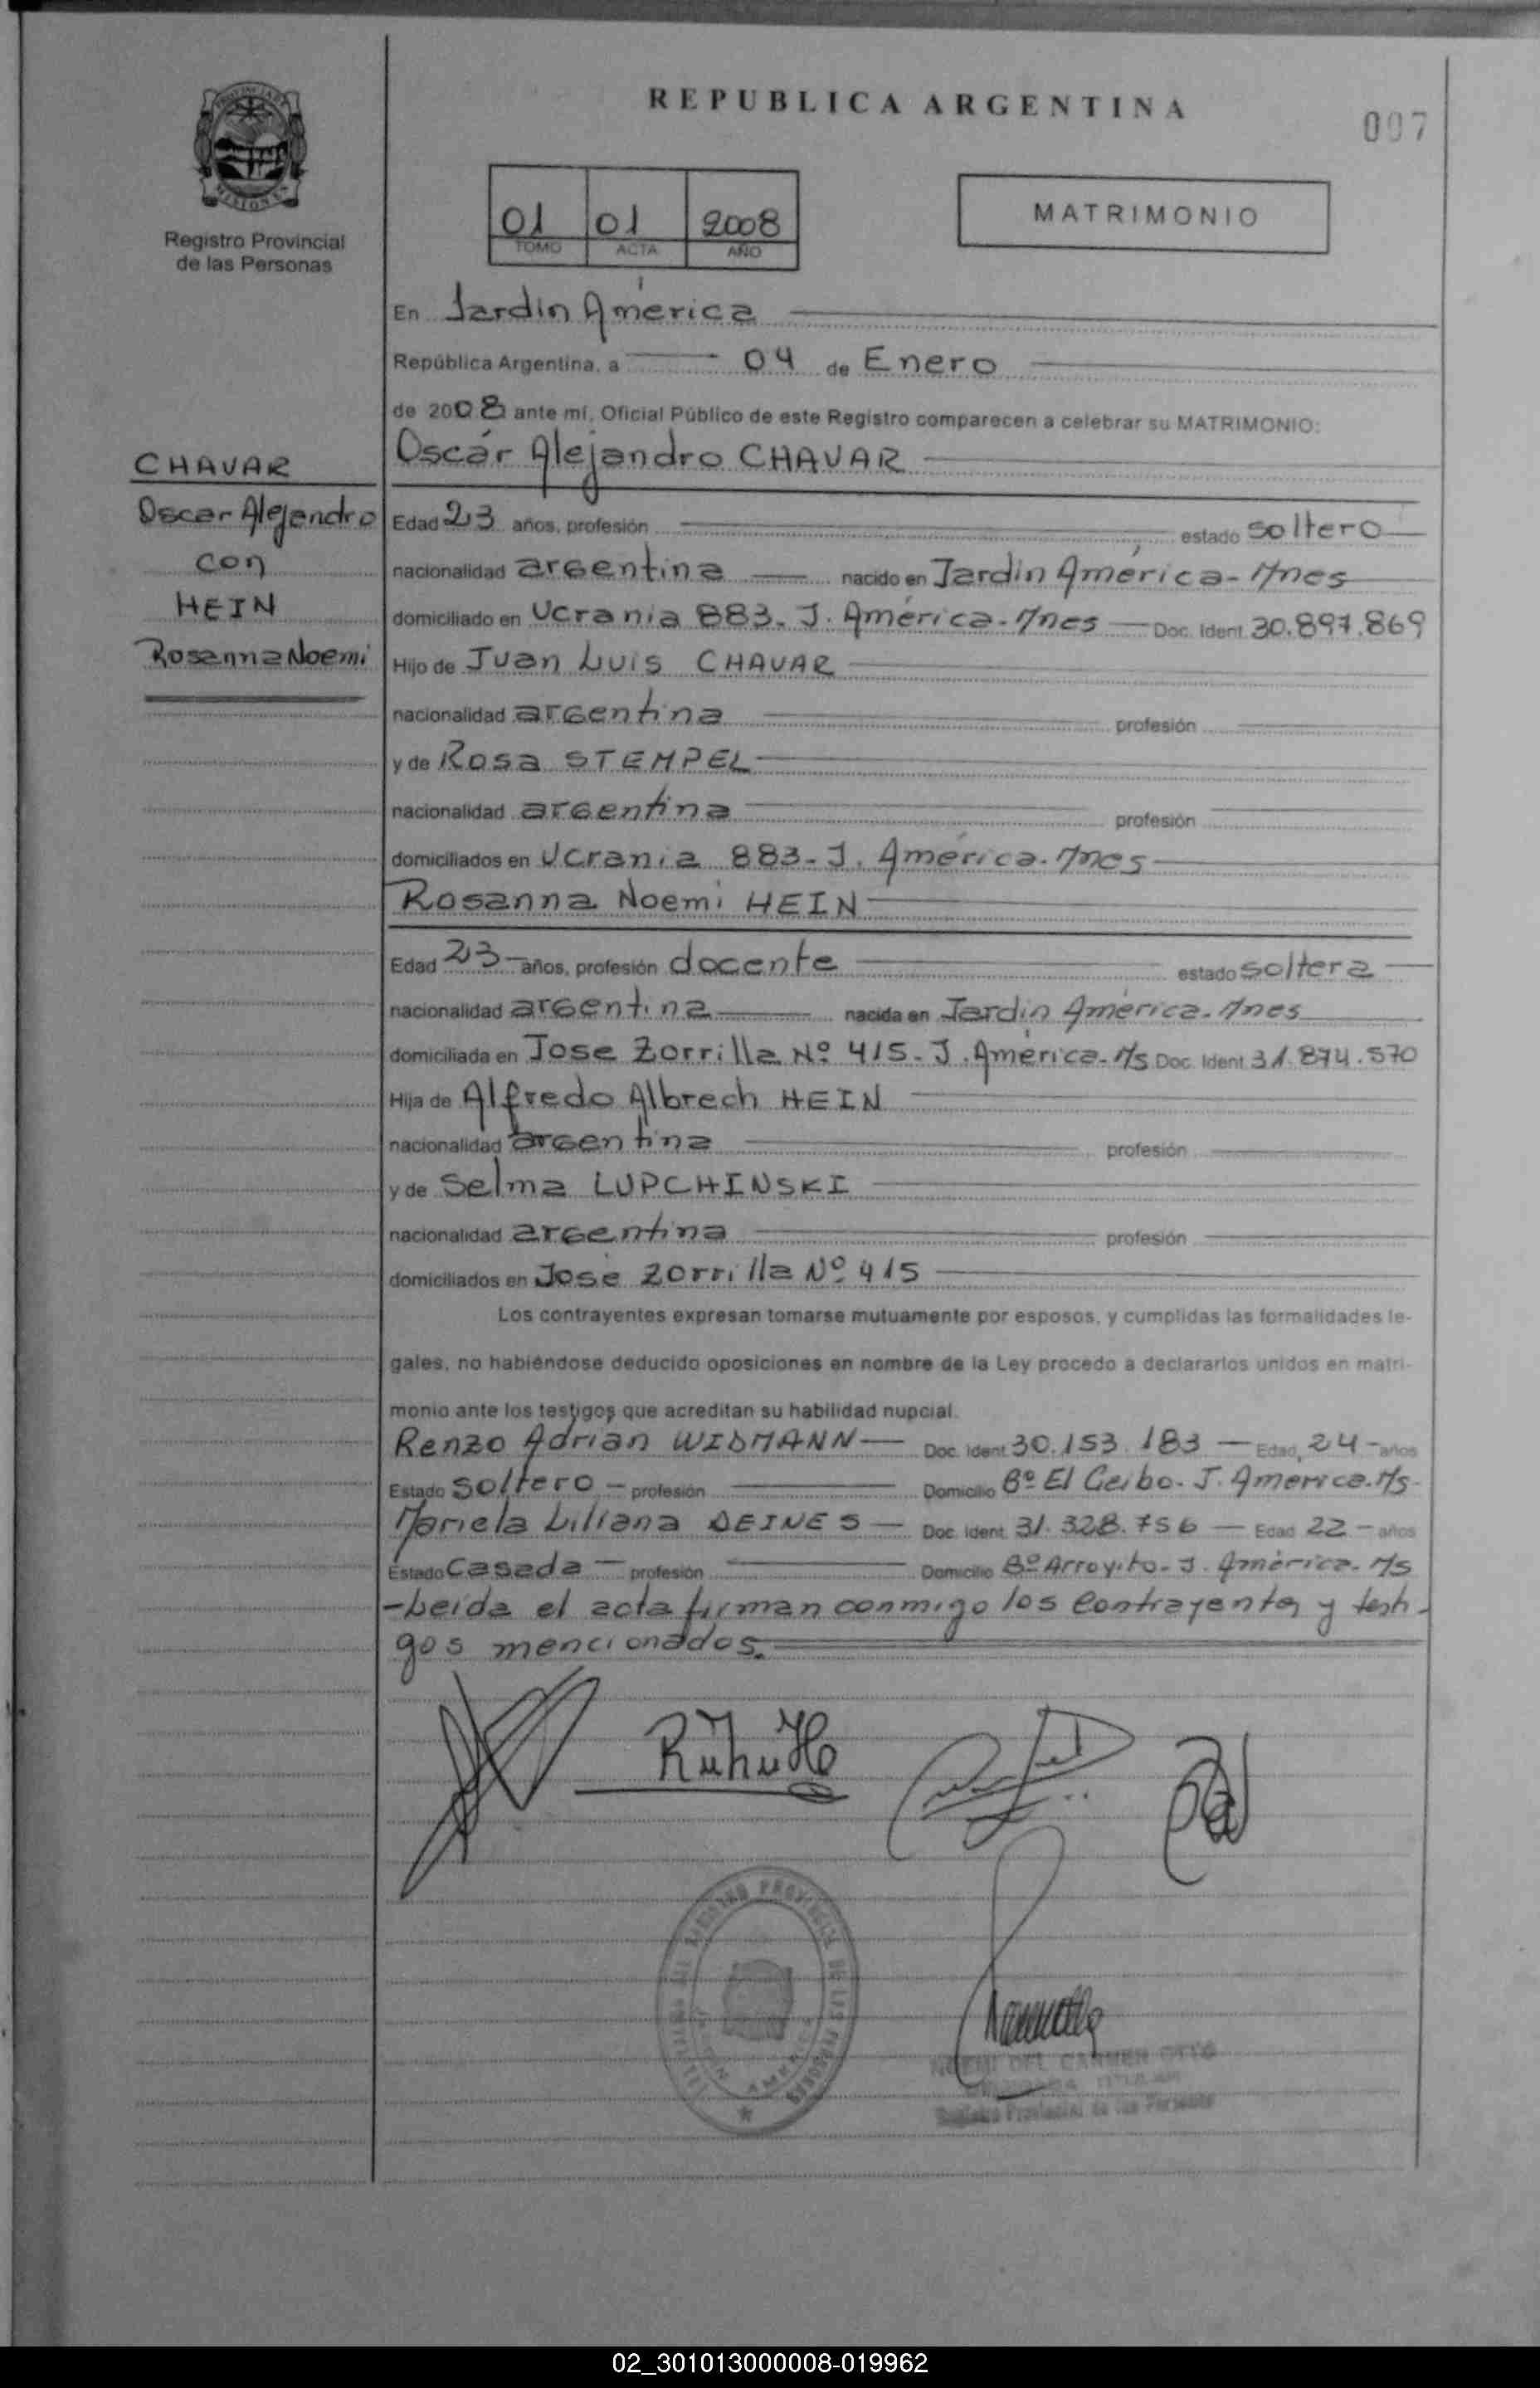 REPUBLICA ARGENTINA
007
Registro Provincial
de las Personas
01 01 2008
TOMO ACTA AÑO
MATRIMONIO
En Jardín América
República Argentina, a 04 de Enero
de 2008 ante mí, Oficial Público de este Registro comparecen a celebrar su MATRIMONIO:
Oscár Alejandro CHAVAR
CHAVAR
Oscar Alejandro
con
HEIN
Rosanna Noemi
Edad 23 años, profesión estado soltero
nacionalidad argentina nacido en Jardín América - Mnes
domiciliado en Ucrania 883. J. América - Mnes Doc. Ident. 30.897.869
Hijo de Juan Luis CHAVAR
nacionalidad argentina profesión
y de Rosa STEMPEL
nacionalidad argentina profesión
domiciliados en Ucrania 883 - J. América - Mnes
Rosanna Noemi HEIN
Edad 23 - años, profesión docente estado soltera
nacionalidad argentina nacida en Jardín América - Mnes
domiciliada en Jose Zorrilla Nº 415 - J. América - M/s Doc. Ident. 31.874.570
Hija de Alfredo Albrech HEIN
nacionalidad argentina profesión
y de Selma LUPCHINSKI
nacionalidad argentina profesión
domiciliados en José Zorrilla Nº 415
Los contrayentes expresan tomarse mutuamente por esposos, y cumplidas las formalidades le-
gales, no habiéndose deducido oposiciones en nombre de la Ley procedo a declararlos unidos en matri-
monio ante los testigos que acreditan su habilidad nupcial.
Renzo Adrian WIDMANN Doc. Ident. 30.153.183 Edad 24 - años
Estado Soltero profesión Domicilio Bº El Ceibo - J. America - M/s
Mariela Liliana DEINES Doc. Ident. 31.328.756 Edad 22 - años
Estado Casada profesión Domicilio Bº Arroyito - J. América - M/s
- Leída el acta firman conmigo los contrayentes y testi-
gos mencionados.
NOEMI DEL CARMEN OTTO
Registro Provincial de las Personas
02_301013000008-019962